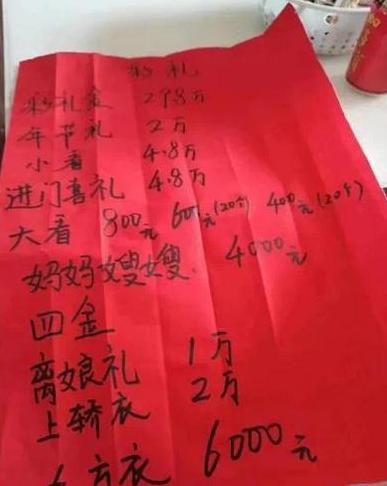 彩礼
彩礼金 29.8万
年节礼 2万
小看 4.8万
进门喜礼 4.8万
大看 800元 600元(20个) 400元(20个)
妈妈嫂嫂. 4000元
四金
离娘礼 1万
上轿衣 2万
衣 6000元